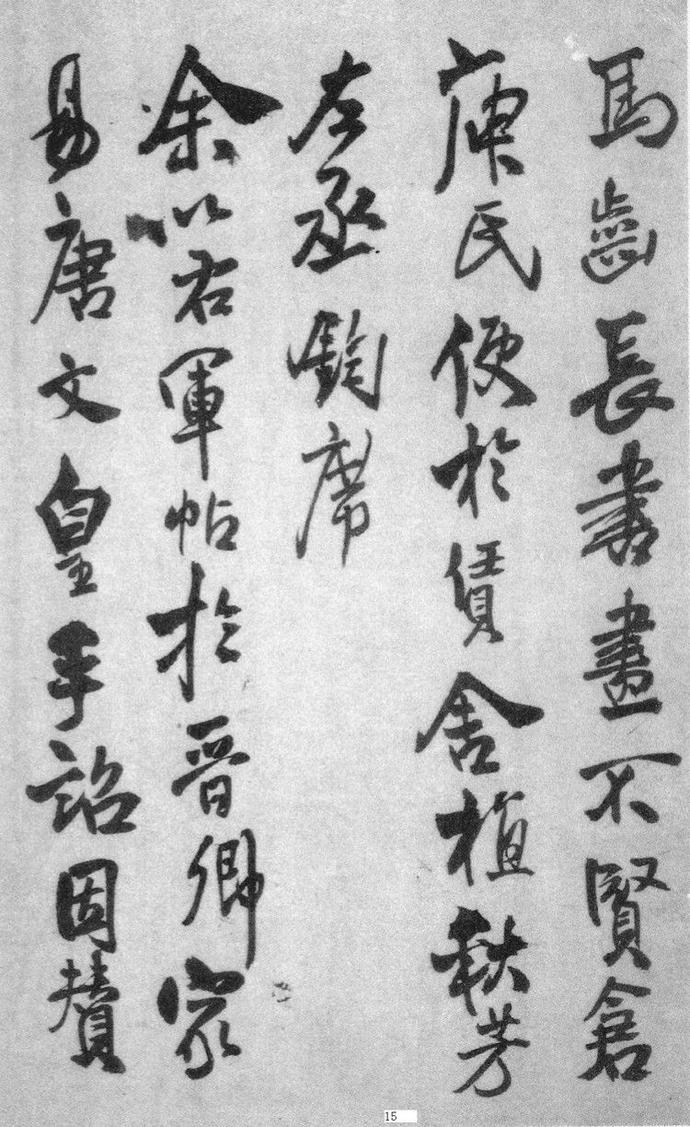 馬齒長書畫不賢倉
庾氏便於賃舍植秋芳
左丞鈞席
余以右軍帖於晉卿家
易唐文皇手詔因贊
15